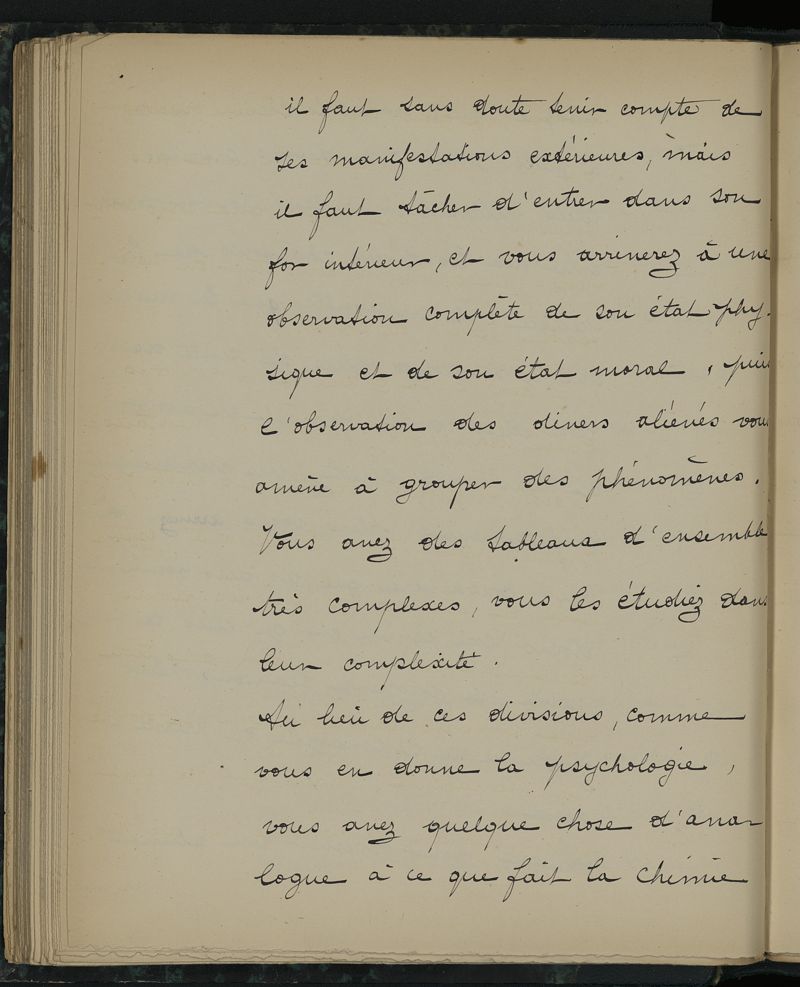 il faut sans doute tenir compte de
ses manifestations extérieures, mais
il faut tâcher d'entrer dans son
for intérieur, et vous arriverez à une
observation complète de son état phy-
sique et de son état moral, puis
l'observation des divers aliénés vous
amène à grouper des phénomènes.
Vous avez des tableaux d'ensemble
très complexes, vous les étudiez dans
leur complexité.
Au lieu de ces divisions, comme
vous en donne la psychologie,
vous avez quelque chose d'ana-
logue à ce que fait la chimie